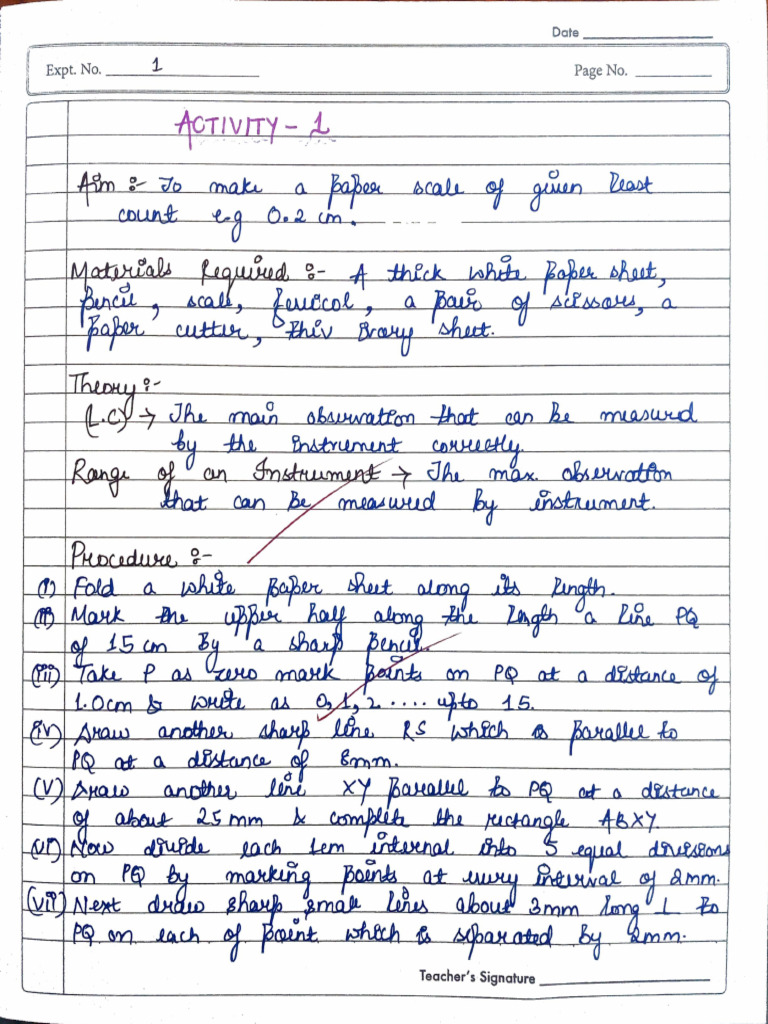 Date
Expt. No. 1
Page No.
ACTIVITY - 1
Aim :- To make a paper scale of given least
count e.g 0.2 cm.
Materials Required :- A thick white paper sheet,
pencil, scale, fevicol, a pair of scissors, a
paper cutter, thin ivory sheet.
Theory :-
(L.C) → The main observation that can be measured
by the instrument correctly.
Range of an Instrument → The max. observation
that can be measured by instrument.
Procedure :-
(i) Fold a white paper sheet along its length.
(ii) Mark the upper half along the length a line PQ
of 15 cm By a sharp pencil.
(iii) Take P as zero mark points on PQ at a distance of
1.0cm & write as 0, 1, 2 .... upto 15.
(iv) Draw another sharp line RS which is parallel to
PQ at a distance of 8mm.
(v) Draw another line XY parallel to PQ at a distance
of about 25 mm & complete the rectangle ABXY.
(vi) Now divide each 1cm internal into 5 equal divisions
on PQ by marking points at every interval of 2mm.
(vii) Next draw sharp small lines about 3mm long ⊥ to
PQ on each of point which is separated by 2mm.
Teacher's Signature